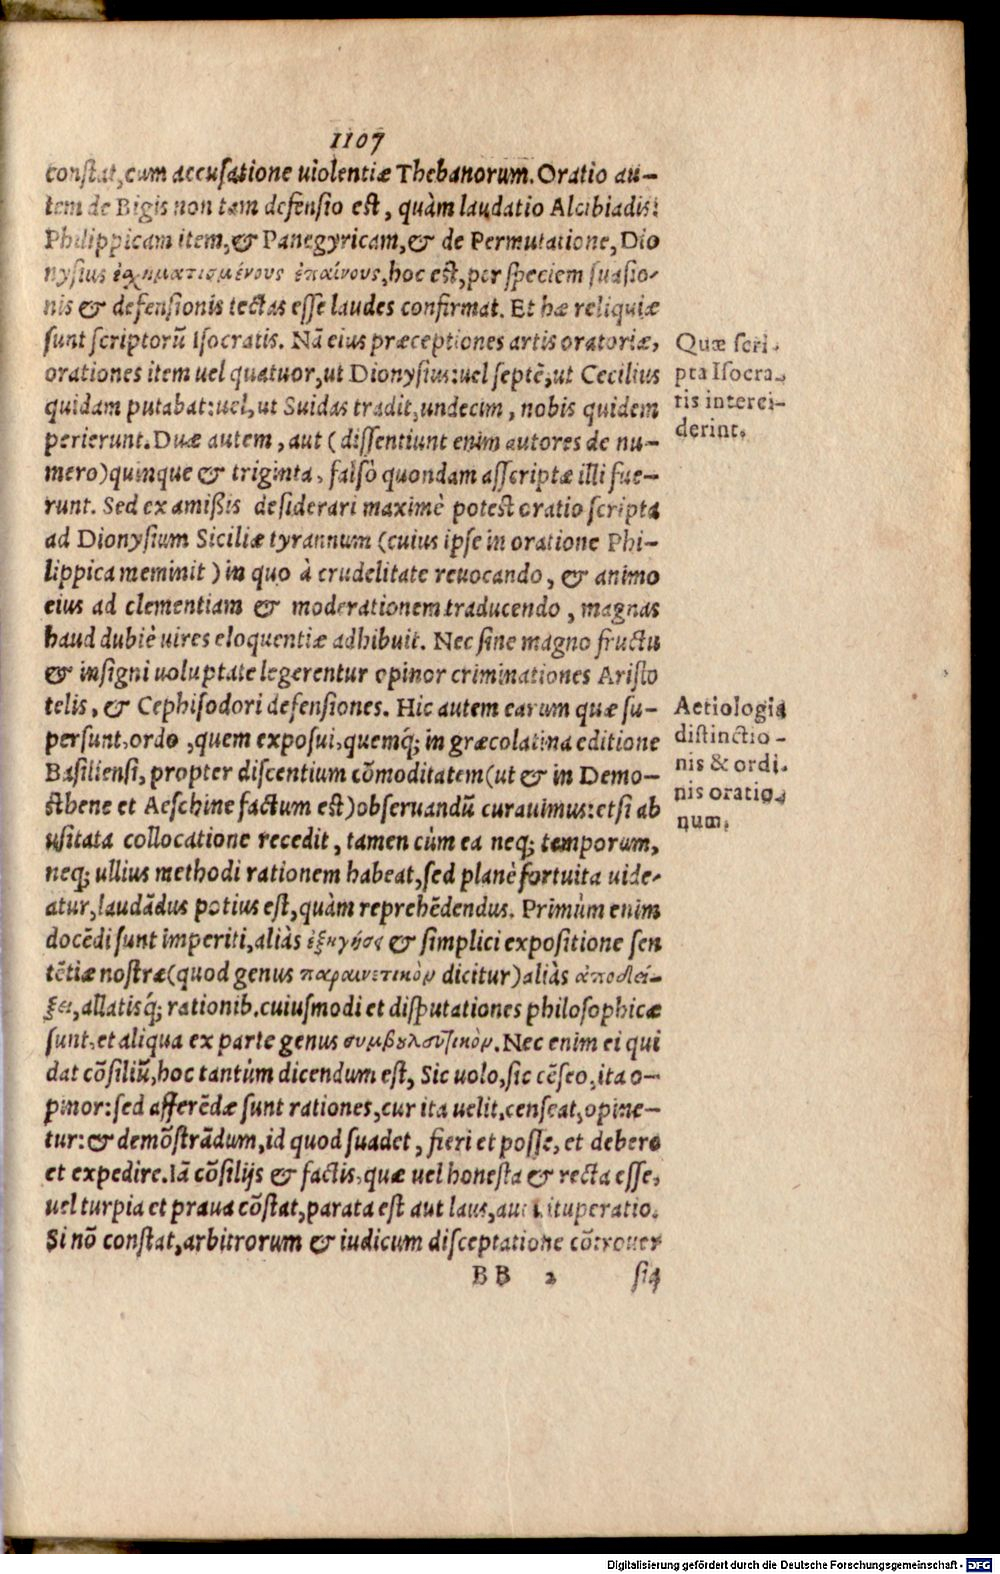 1107
constat, cum accusatione uiolentiæ Thebanorum. Oratio au-
tem de Bigis non tam defensio est, quàm laudatio Alcibiadis:
Philippicam item, & Panegyricam, & de Permutatione, Dio
nysius ἐσχηματισμένους ἐπαίνους, hoc est, per speciem suasio-
nis & defensionis tectas esse laudes confirmat. Et hæ reliquiæ
sunt scriptorũ Isocratis. Nã eius præceptiones artis oratoriæ,
orationes item uel quatuor, ut Dionysius: uel septẽ, ut Cecilius
quidam putabat: uel, ut Suidas tradit, undecim, nobis quidem
perierunt. Duæ autem, aut (dissentiunt enim autores de nu-
mero) quinque & triginta, falsò quondam asscriptæ illi fue-
runt. Sed ex amißis desiderari maximè potest oratio scripta
ad Dionysium Siciliæ tyrannum (cuius ipse in oratione Phi-
lippica meminit) in quo à crudelitate reuocando, & animo
eius ad clementiam & moderationem traducendo, magnas
haud dubiè uires eloquentiæ adhibuit. Nec sine magno fructu
& insigni uoluptate legerentur opinor criminationes Aristo
telis, & Cephisodori defensiones. Hic autem earum quæ su-
persunt, ordo, quem exposui, quemq́; in græcolatina editione
Basiliensi, propter discentium cõmoditatem (ut & in Demo-
sthene et Aeschine factum est) obseruandũ curauimus: etsi ab
usitata collocatione recedit, tamen cùm ea neq; temporum,
neq; ullius methodi rationem habeat, sed planè fortuita uide-
atur, laudãdus potius est, quàm reprehẽdendus. Primùm enim
docẽdi sunt imperiti, aliàs ἐξηγήσει & simplici expositione sen
tẽtiæ nostræ (quod genus παραινετικὸν dicitur) aliàs ἀποδεί-
ξει, allatisq́; rationib. cuiusmodi et disputationes philosophicæ
sunt, et aliqua ex parte genus συμβȣλευτικὸν. Nec enim ei qui
dat cõsiliũ, hoc tantùm dicendum est, Sic uolo, sic cẽseo, ita o-
pinor: sed afferẽdæ sunt rationes, cur ita uelit, censeat, opine-
tur: & demõstrãdum, id quod suadet, fieri et posse, et debere
et expedire. Iã cõsilijs & factis, quæ uel honesta & recta esse,
uel turpia et praua cõstat, parata est aut laus, aut uituperatio.
Si nõ constat, arbitrorum & iudicum disceptatione cõtrouer
BB 2 siæ
Quæ scri-
pta Isocra-
tis interci-
derint.
Aetiologia
distinctio-
nis & ordi-
nis oratio-
num.
Digitalisierung gefördert durch die Deutsche Forschungsgemeinschaft - DFG